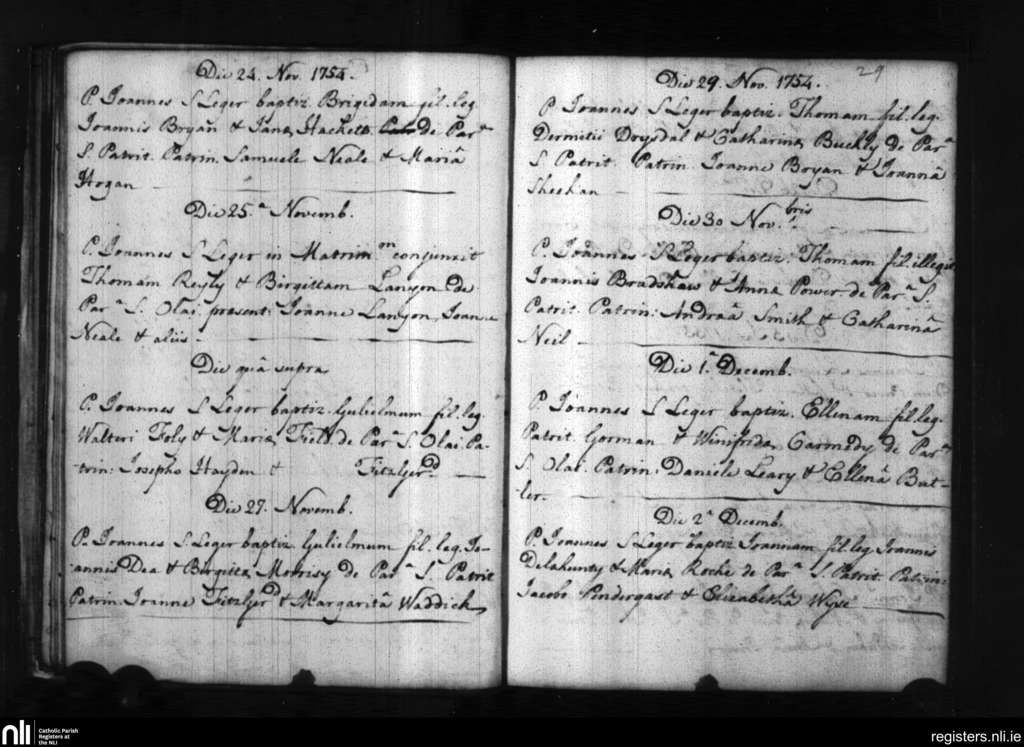 Die 24. Nov. 1754.
P. Joannes S Leger baptiz. Brigidam fil. leg.
Joannis Bryan & Janæ Hackett de Par.ª
S. Patrit. Patrin. Samuele Neale & Mariâ
Hogan
Die 25.ª Novemb.
P. Joannes S Leger in Matrim.on conjunxit
Thomam Reyly & Birgittam Lanyon de
Par.ª S. Olai. present: Joanne Lanyon, Joanne
Neale & aliis.
Die quâ supra
P. Joannes S Leger baptiz. Gulielmum fil. leg.
Walteri Foly & Mariæ Field de Par.ª S. Olai. Pa-
trin: Josepho Hayden & Fitzger.d
Die 27. Novemb.
P. Joannes S. Leger baptiz. Gulielmum fil. leg. Jo-
annis Dea & Birgittæ Morrisy de Par.ª S. Patrit
Patrin. Joanne Fitzger.d & Margaritâ Waddick
29
Die 29. Nov. 1754.
P. Joannes S Leger baptiz. Thomam fil. leg.
Dermitii Drysdal & Catharinæ Buckly de Par.ª
S. Patrit. Patrin. Joanne Bryan & Joannâ
Sheehan
Die 30 Nov.bris
P. Joannes S Leger baptiz. Thomam fil. illegit.
Joannis Bradshaw & Annæ Power de Par.ª S.
Patrit. Patrin: Andraâ Smith & Catharinâ
Neil
Die 1.ª Decemb.
P. Joannes S Leger baptiz. Ellenam fil. leg.
Patrit. Gorman & Winifridæ Carmedy de Par.ª
S. Olai. Patrin. Daniele Leary & Ellenâ But-
ler.
Die 2ª Decemb.
P. Joannes S Leger baptiz. Joannam fil. leg. Joannis
Delahunty & Mariæ Roche de Par.ª S. Patrit. Patrin:
Jacobo Pendergast & Elizabethâ Wyse
nli
Catholic Parish
Registers at
the NLI
registers.nli.ie